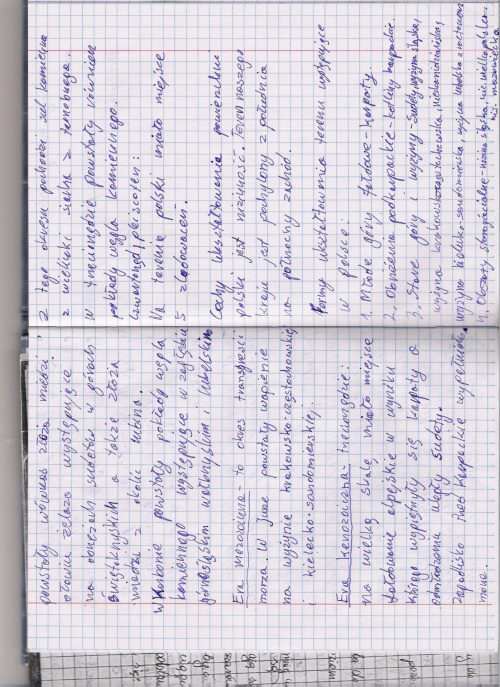 powstały wówczas złoża miedzi,
ołowiu żelaza występujące
na obrzeżach sudetów w górach
świętokrzyskich a także złoża
miedzi z okolic lubina.
W karbonie powstały pokłady węgla
kamiennego występujące w zagłębiu
górnośląskim wałbrzyskim i lubelskim
Era mezozoiczna - to okres transgresji
morza. W jurze powstały wapienie
na wyżynie krakowsko-częstochowskiej
i kielecko-sandomierskiej.
Era kenozoiczna - trzeciorzęd:
na wielką skalę miało miejsce
fałdowanie alpejskie w wyniku
którego wypiętrzyły się karpaty a
odmłodzeniu uległy sudety.
Zapadlisko Przed Karpackie wypełniło
morze.
Z tego okresu pochodzi sól kamienna
z wieliczki siarka z tarnobrzega.
W trzeciorzędzie powstały również
pokłady węgla kamiennego.
Czwartorzęd, plejstocen:
Na terenie polski miało miejsce
5 zlodowaceń.
Cechy ukształtowania powierzchni
polski jest nizinność. Teren naszego
kraju jest pochylony z południa
na północny zachód.
Formy ukształtowania terenu występujące
w polsce:
1. Młode góry fałdowe - karpaty.
2. Obniżenia podkarpackie - kotliny karpackie.
3. Stare góry i wyżyny - Sudety, wyżyna śląska,
wyżyna krakowsko częstochowska, niecka nidziańska,
wyżyna kielecko-sandomierska, wyżyna lubelska z roztoczem
4. Obszary staroglacjalne - nizina śląska, niz. wielkopolska
niz. mazowiecka